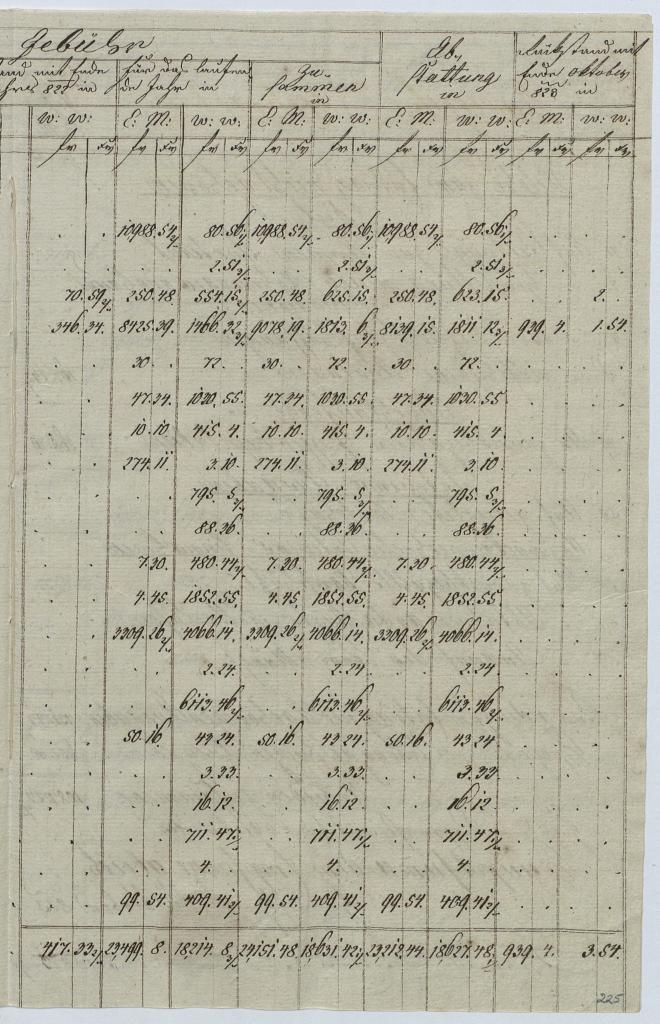 Gebühr Ab Rückstand mit
und mit Ende für das laufen zu stattung Ende oktober
hres 828 in de Jahr in sammen in in 828 in
W: W: C: M: W: W: C: M: W: W: C: M: W: W: C: M: W: W:
fr Xr fr Xr fr Xr fr Xr fr Xr fr Xr fr Xr fr Xr fr Xr
10988. 54 2/ 80. 56 1/ 10988. 54 2/ 80. 56 1/ 10988. 54 2/ 80. 56 1/
2. 51 3/ 2. 51 3/ 2. 51 3/
70. 59 2/ 250. 48. 554. 15 2/ 250. 48. 625. 15. 250. 48. 623. 15. 2.
346. 34. 8425. 39. 1466. 32 3/ 9078. 19. 1813. 6 3/ 8139. 15. 1811. 12 3/ 939. 4. 1. 54.
30. 72. 30. 72. 30. 72.
47. 34. 1030. 55 47. 34. 1030. 55 47. 34. 1030. 55
10. 10. 415. 4. 10. 10. 415. 4. 10. 10. 415. 4
274. 11. 3. 10. 274. 11. 3. 10. 274. 11. 3. 10.
795. 5 3/ 795. 5 3/ 795. 5 3/
88. 36. 88. 36. 88. 36.
7. 30. 480. 44 2/ 7. 30. 480. 44 2/ 7. 30. 480. 44 2/
4. 45. 1852. 55. 4. 45. 1852. 55. 4. 45. 1852. 55
3309. 26 2/ 4066. 14. 3309. 26 2/ 4066. 14. 3309. 26 2/ 4066. 14.
2. 24. 2. 24. 2. 24
6113. 46 2/ 6113. 46 2/ 6113. 46 2/
50. 16. 43 24. 50. 16. 43 24. 50. 16. 43 24
3. 33. 3. 33. 3. 33
16. 12 16. 12 16. 12
711. 47 1/ 711. 47 1/ 711. 47 1/
4. 4. 4.
99. 54. 409. 41 2/ 99. 54. 409. 41 2/ 99. 54. 409. 41 2/
417. 33 2/ 23,499. 8. 18,214. 8 3/ 24,151. 48. 18,631. 42 1/ 23,212. 44. 18,627. 48 1/ 939. 4. 3. 54.
225